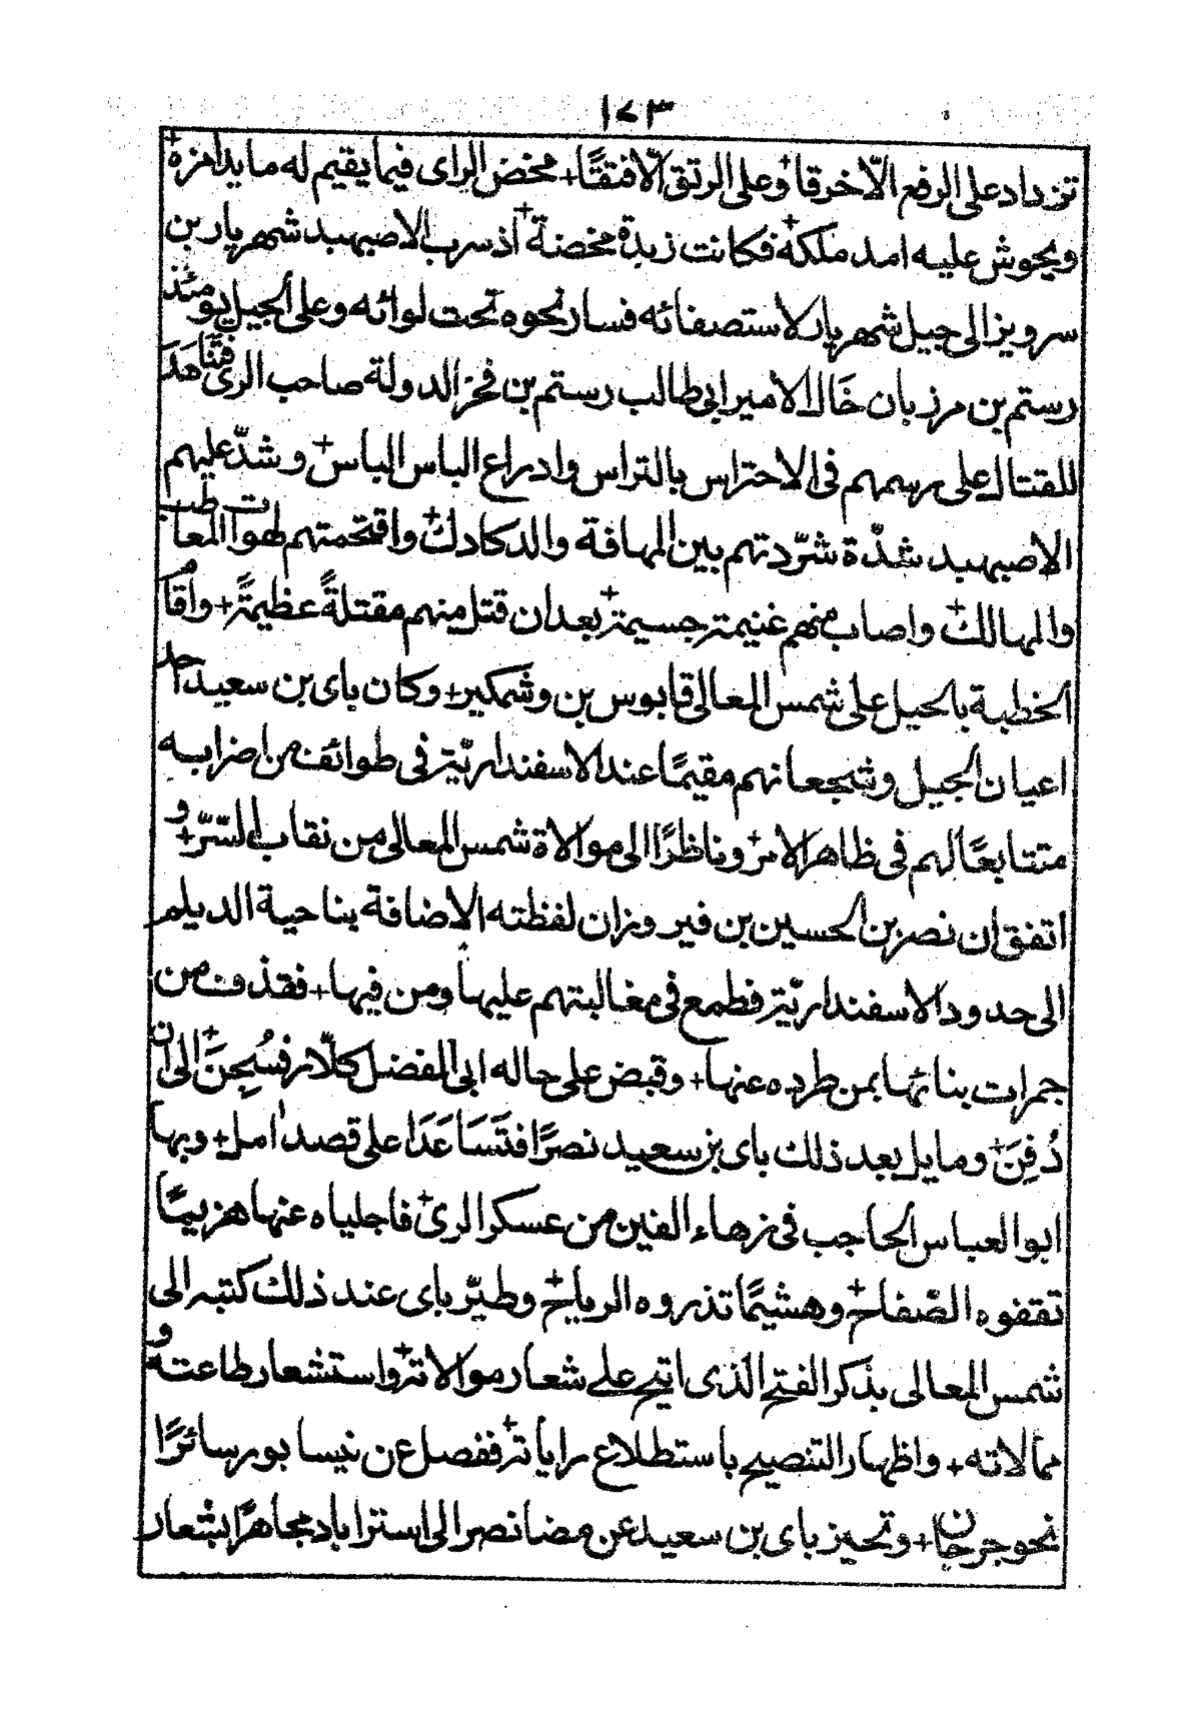 ١٧٣
تزداد على الرفع الّا خرقا + وعلى الرتق الّا فتقًا + مخض الراى فيما يقيم له مايد اهزه +
ويحوش عليه امد ملكه + فكانت زبدة مخضتة + اذ سرب الاصبهبد شهريار بن
سرويز الى جبل شهريار لاستصفائه فسار نحوه تحت لوائه وعلى الجبل يومئذ
رستم بن مرزبان خَال الامير ابى طالب رستم بن فخز الدولة صاحب الرى فتَنَاهَدَ
للقتال على رسمهم فى الاحتراس بالتراس وادراع الباس الباس + وشدّ عليهم
الاصبهبد شدّة شرّدتهم بين المهافة والدكادك + واقتحمتهم لهوات المعاطب
والمهالك + واصاب منهم غنيمة جسيمة + بعد ان قتل منهم مقتلةً عظيمةً + واقام
الخطبة بالجبل على شمس المعالى قابوس بن وشمكير + وكان باى بن سعيد احد
اعيان الجيل وشجعانهم مقيمًا عند الاسفنداريّة فى طوائف من اضرابه
متتابعًا لهم فى ظاهر الامر + وناظرًا الى موالاة شمس المعالى من نقاب السّرّ + و
اتفق ان نصر بن الحسين بن فيروزان لفظته الاضافة بناحية الديلم
الى حدود الاسفنداريّة فطمع فى مغالبتهم عليها ومن فيها + فقذف من
جمرات بنائها بمن طرده عنها + وقبض على حاله ابى الفضل كلّار فسُجِنَ + الى ان
دُفِنَ + ومايل بعد ذلك باى بن سعيد نصرًا فتَسَاعَدَا على قصد امل + وبها
ابو العباس الحاجب فى زهاء الفين من عسكر الرى + فاجلياه عنها هزيمًا
تقفوه الصّفاح + وهشيمًا تذروه الرياح + وطيّر باى عند ذلك كتبه الى
شمس المعالى بذكر الفتح الّذى اتيح على شعار موالاته + واستشعار طاعته و
ممالاته + واظهار التنصيح باستطلاع راياته + ففصل عن نيسابور سائرًا
نحو جرجان + وتحيز باى بن سعيد عن مضا نصر الى استراباد مجاهرًا بشعار